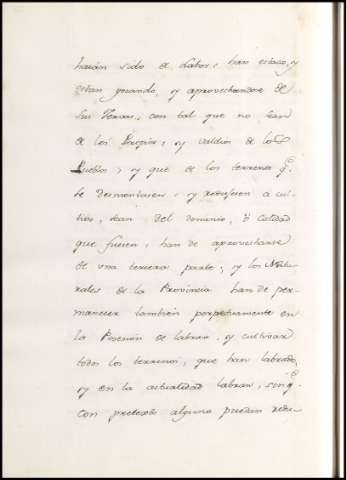 havian sido de Labor, han estado, y
estan gozando, y aprovechandose de
sus Yervas, con tal que no sean
de los Propios, y valdios de los
Pueblos, y que de los terrenos q.e
se desmontaren, y reduxesen a cul-
tivo, sean del dominio, ó calidad
que fuesen, han de aprovecharse
de una tercera parte, y los Natu-
rales de la Provincia han de per-
manecer tambien perpetuamente en
la Posesion de labrar, y cultivar
todos los terrenos, que han labrado,
y en la actualidad labran, sin q.e
con pretexto alguno puedan redu-